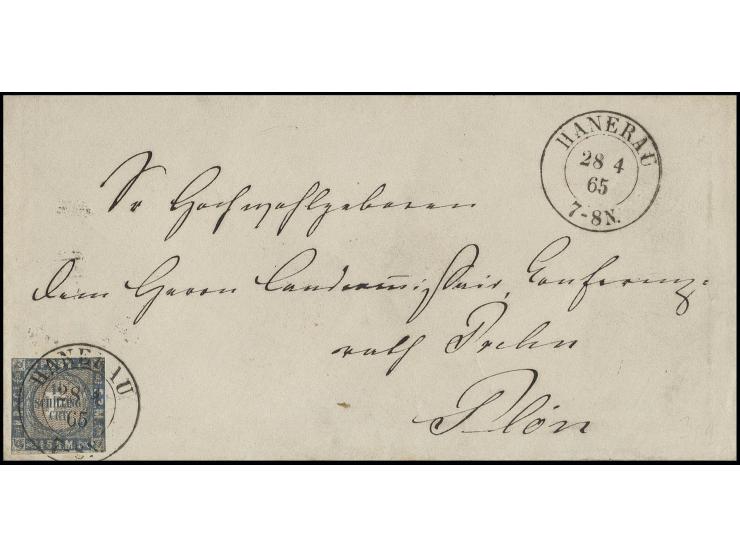 HANERAU
28 4
65
7-8N.
Sr Hochwohlgeboren
dem Herrn Landcommissair, Conferenz-
rath Prehn
Plön
HANERAU
28 4
65
SCHILLING